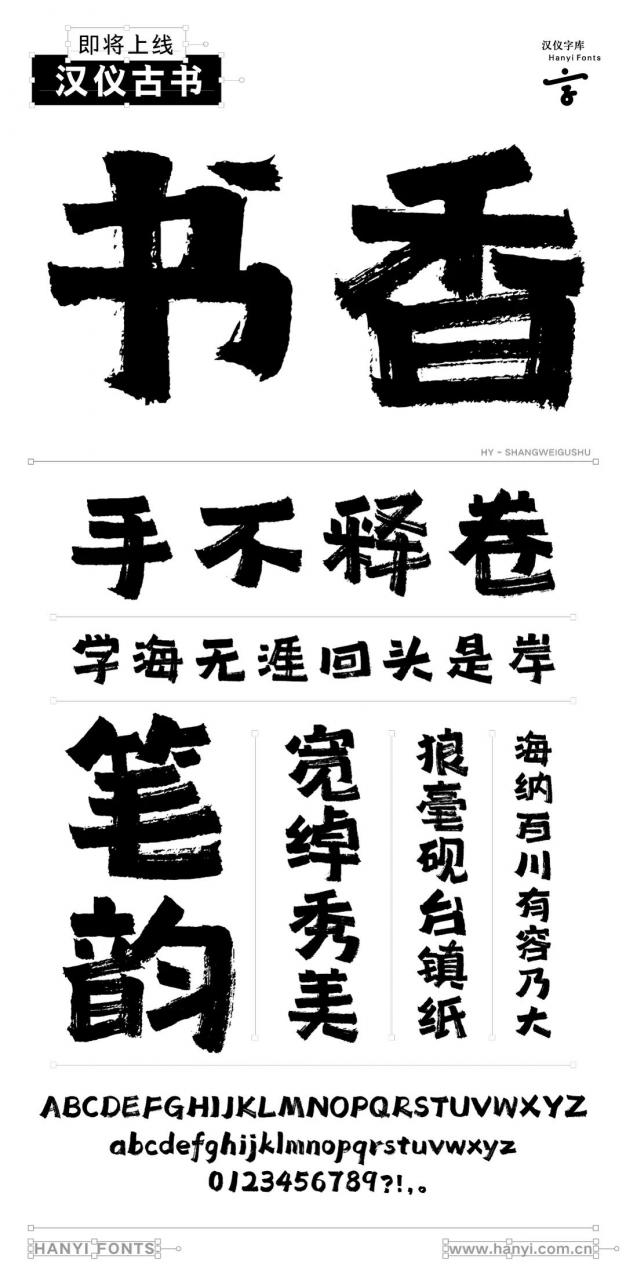 即将上线
汉仪古书
汉仪字库
Hanyi Fonts
书香
HY - SHANGWEIGUSHU
手不释卷
学海无涯回头是岸
笔韵
宽绰秀美
狼毫砚台镇纸
海纳百川有容乃大
ABCDEFGHIJKLMNOPQRSTUVWXYZ
abcdefghijklmnopqrstuvwxyz
0123456789?!,。
HANYI FONTS
www.hanyi.com.cn